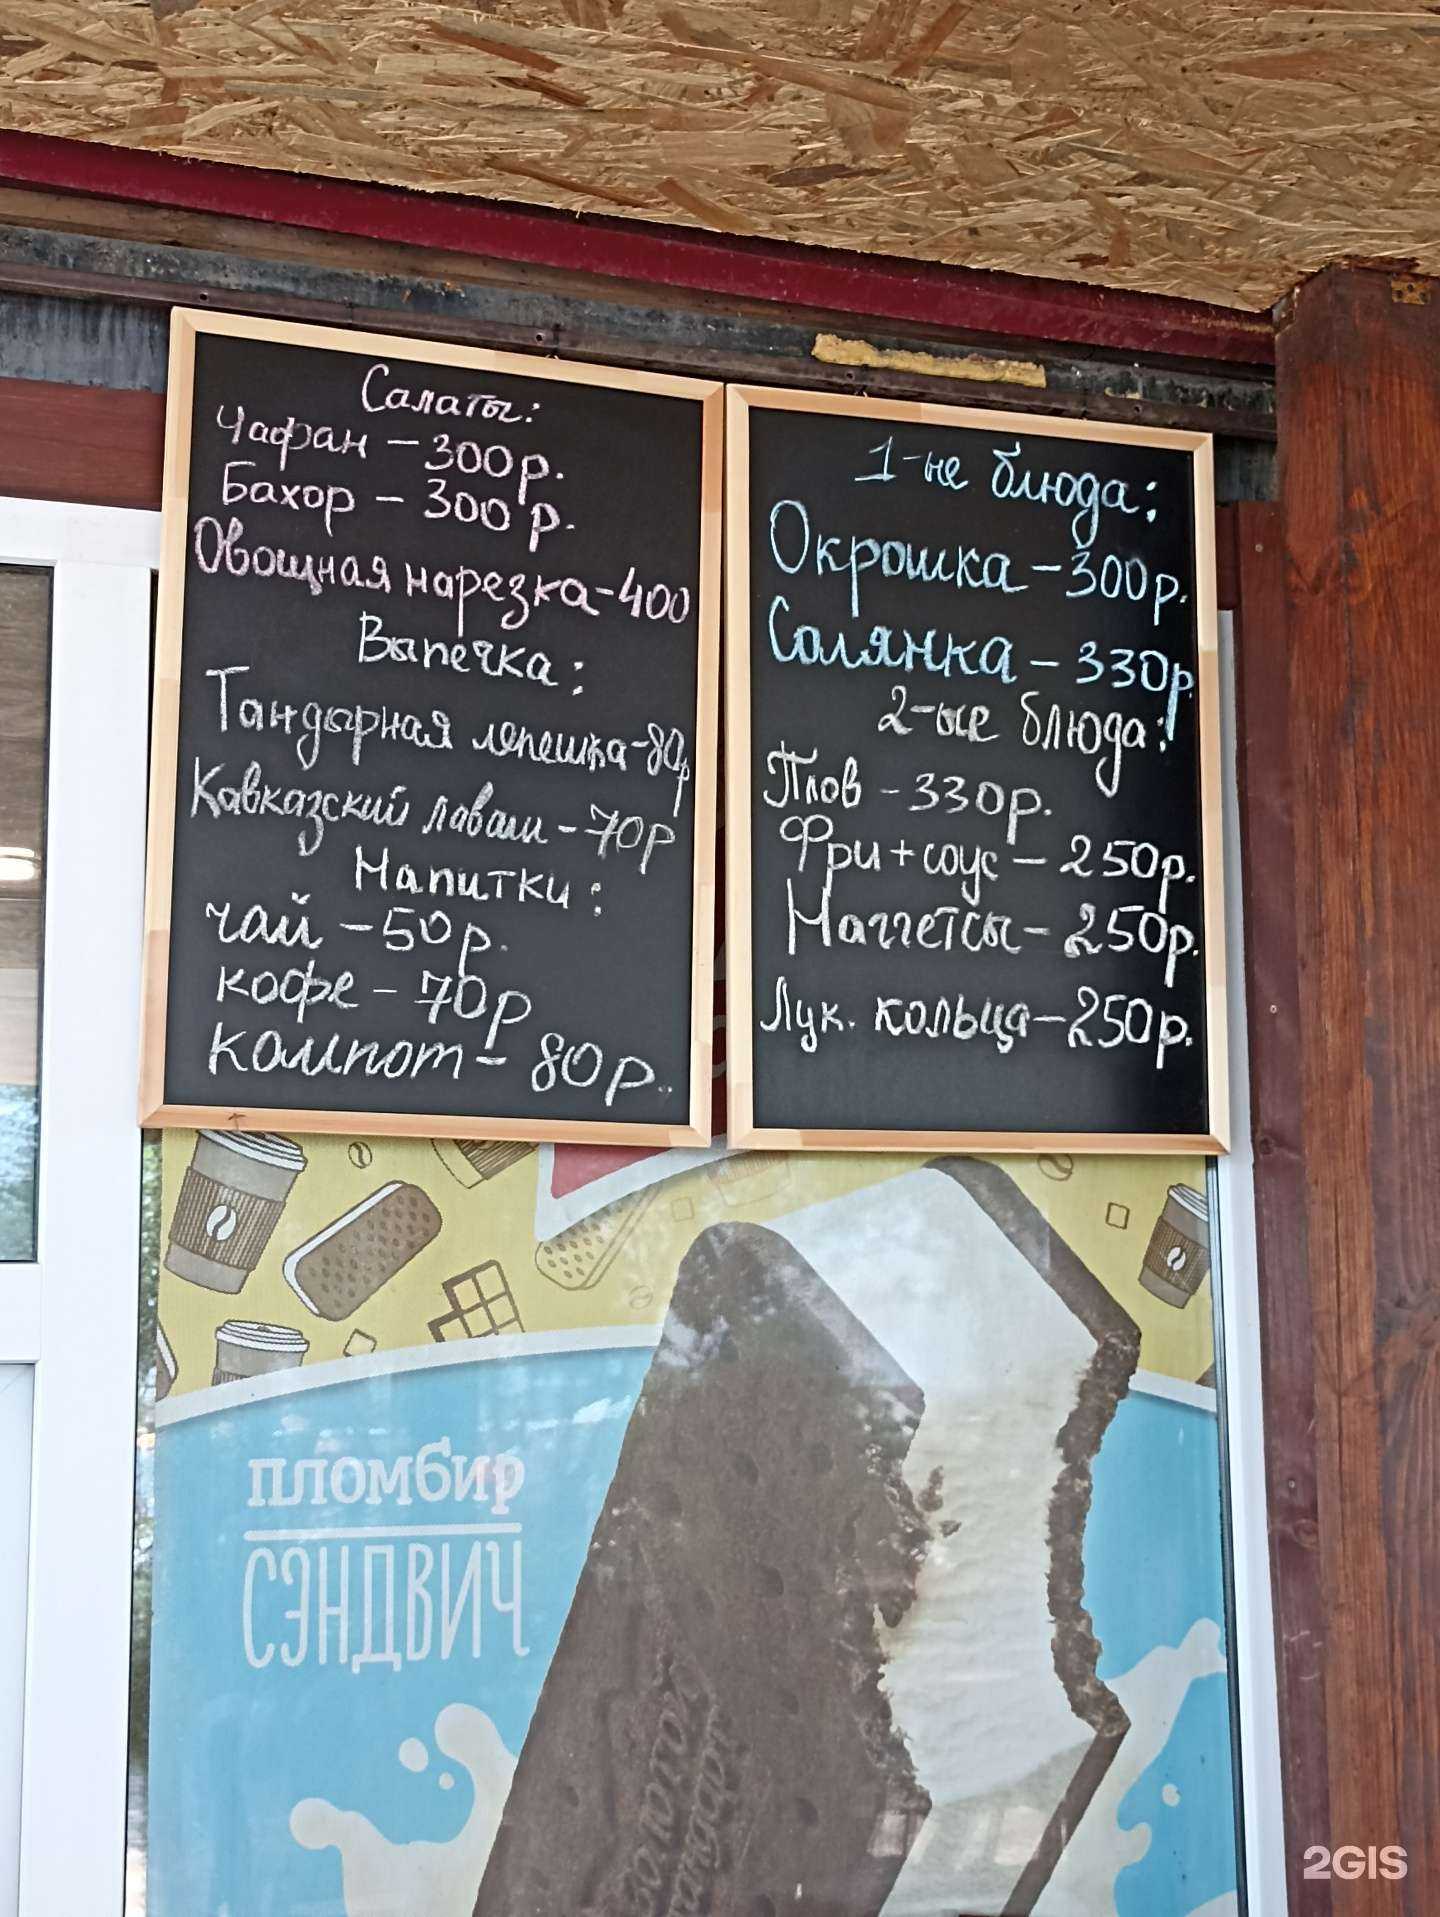 Салаты:
Чафран - 300 р.
Бахор - 300 р.
Овощная нарезка - 400
Выпечка:
Тандырная лепешка - 80р
Кавказский лаваш - 70р
Напитки:
чай - 50 р.
кофе - 70р
компот - 80р.
1-ые блюда:
Окрошка - 300р.
Солянка - 330р.
2-ые блюда:
Плов - 330р.
Фри + соус - 250р.
Наггетсы - 250р.
Лук. кольца - 250р.
пломбир
СЭНДВИЧ
Золотой
Стандарт
2GIS